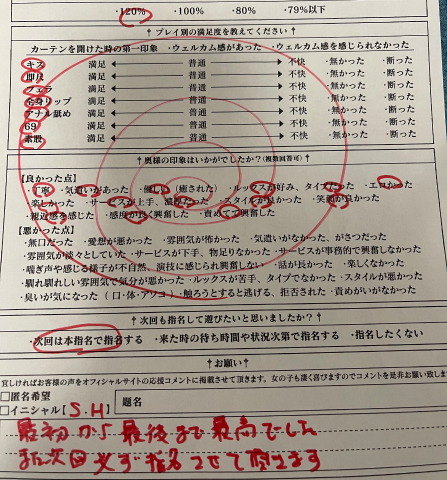 ・120% ・100% ・80% ・79%以下
↑プレイ別の満足度を教えてください↑
カーテンを開けた時の第一印象 ・ウェルカム感があった ・ウェルカム感を感じられなかった
キス 満足 普通 不快 ・無かった ・断った
即尺 満足 普通 不快 ・無かった ・断った
フェラ 満足 普通 不快 ・無かった ・断った
全身リップ 満足 普通 不快 ・無かった ・断った
アナル舐め 満足 普通 不快 ・無かった ・断った
69 満足 普通 不快 ・無かった ・断った
素股 満足 普通 不快 ・無かった ・断った
↑奥様の印象はいかがでしたか?(複数回答可)↑
【良かった点】
・丁寧 ・気遣いがあった ・優しい(癒された) ・ルックスが好み、タイプだった ・エロかった
・楽しかった ・サービスが上手、濃厚だった ・スタイルが良かった ・笑顔が良かった
・親近感を感じた ・感度が良く興奮した ・責めてて興奮した
【悪かった点】
・無口だった ・愛想が悪かった ・雰囲気が怖かった ・気遣いがなかった、がさつだった
・雰囲気が淡々としていた ・サービスが下手、物足りなかった ・サービスが事務的で興奮しなかった
・喘ぎ声や感じる様子が不自然、演技に感じられ興奮しない ・話が長かった ・楽しくなかった
・馴れ馴れしい雰囲気で気分が悪かった ・ルックスが苦手、タイプでなかった ・スタイルが悪かった
・臭いが気になった(口・体・アソコ) ・触ろうとすると逃げる、拒否された ・責めがいがなかった
↑次回も指名して遊びたいと思いましたか?↑
・次回は本指名で指名する ・来た時の待ち時間や状況次第で指名する ・指名したくない
↑お願い↑
宜しければお客様の声をオフィシャルサイトの応援コメントに掲載させて頂きます。女の子も凄く喜びますのでコメントを是非お願い致しま
□匿名希望
□イニシャル【S.H】 題名
最初から最後まで最高でした
また次回必ず指名させて頂きます